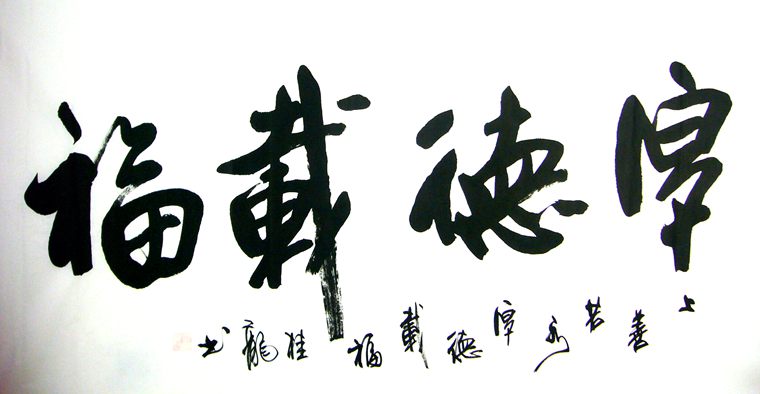 厚德載福
上善若水厚德載福桂龍书